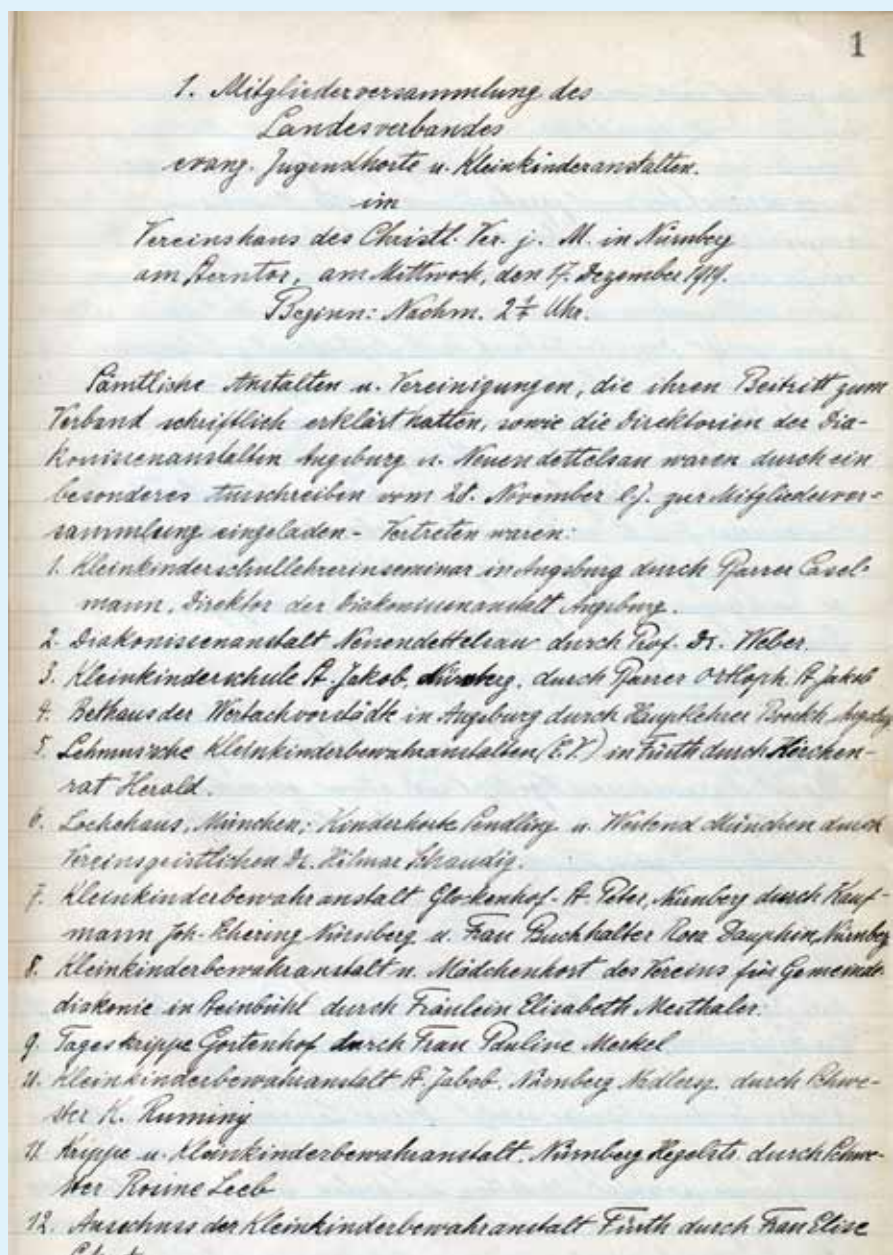 1
1. Mitgliederversammlung des
Landesverbandes
evang. Jugendhorte u. Kleinkinderanstalten.
im
Vereinshaus des Christl. Ver. j. M. in Nürnberg
am Sterntor, am Mittwoch, den 17. Dezember 1919.
Beginn: Nachm. 2 Uhr.
Sämtliche Anstalten u. Vereinigungen, die ihren Beitritt zum
Verband schriftlich erklärt hatten, sowie die Direktorien der Dia-
konissenanstalten Augsburg u. Neuendettelsau waren durch ein
besonderes Ausschreiben vom 28. November l. J. zur Mitgliederver-
sammlung eingeladen - Vertreten waren:
1. Kleinkinderschullehrerinseminar in Augsburg durch Pfarrer Casel-
mann, Direktor der Diakonissenanstalt Augsburg.
2. Diakonissenanstalt Neuendettelsau durch Prof. Dr. Weber.
3. Kleinkinderschule St. Jakob, Nürnberg, durch Pfarrer Ortloph, St. Jakob
4. Bethaus der Wertachvorstädte in Augsburg durch Hauptlehrer
5. Lehmus'sche Kleinkinderbewahranstalten (E.V.) in Fürth durch Kirchen-
rat Herold.
6. Löhehaus, München; Kinderhorte Sendling u. Westend München durch
Vereinsgeistlichen Dr. Hilmar Schaudig.
7. Kleinkinderbewahranstalt Glockenhof-St. Peter, Nürnberg durch Kauf-
mann Joh. Nürnberg u. Frau Buchhalter Rosa Dauphin, Nürnberg
8. Kleinkinderbewahranstalt u. Mädchenhort des Vereins für Gemeinde-
diakonie in Steinbühl durch Fräulein Elisabeth Mesthaler.
9. Tageskrippe Gostenhof durch Frau Pauline Merkel
Kleinkinderbewahranstalt St. Jakob, Nürnberg durch Schwe-
ster K. Ruminy
11. Krippe u. Kleinkinderbewahranstalt. Nürnberg Hegelstr. durch Schwe-
ster Rosine Leeb
12. Ausschuss der Kleinkinderbewahranstalt Fürth durch Frau Elise